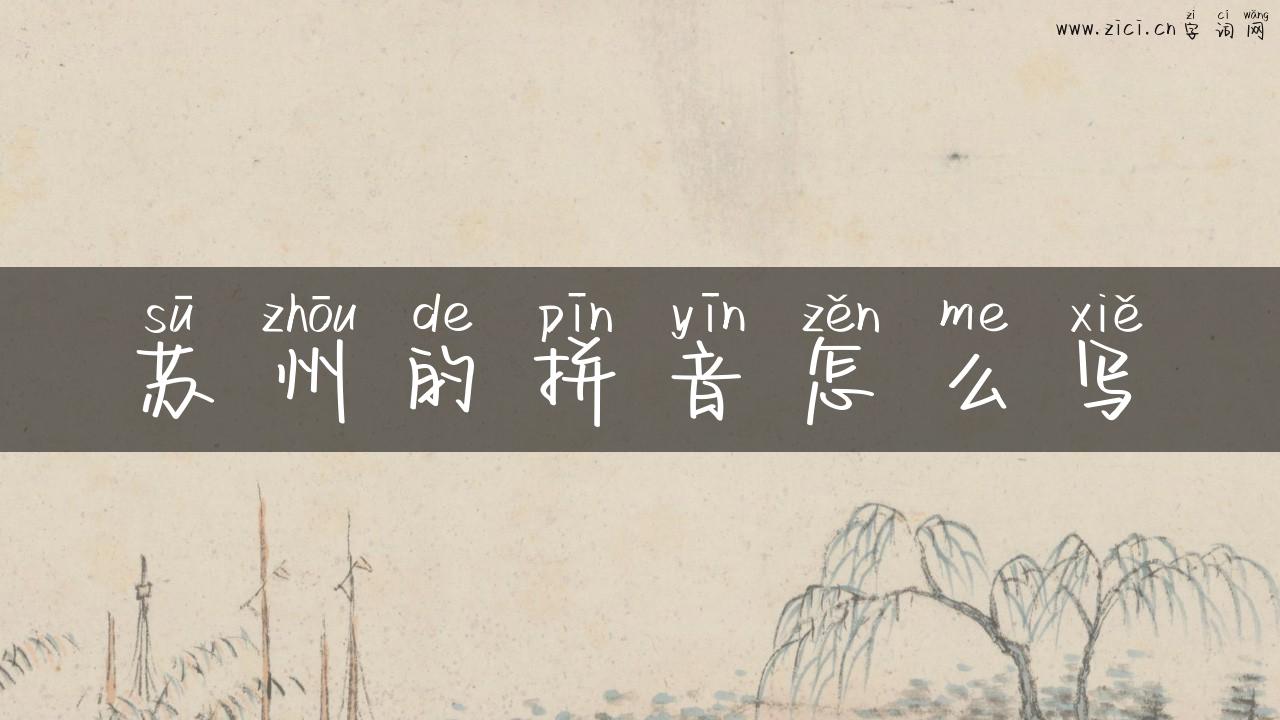 zì cí wǎng
www.zici.cn 字 词 网
sū zhōu de pīn yīn zěn me xiě
苏 州 的 拼 音 怎 么 写